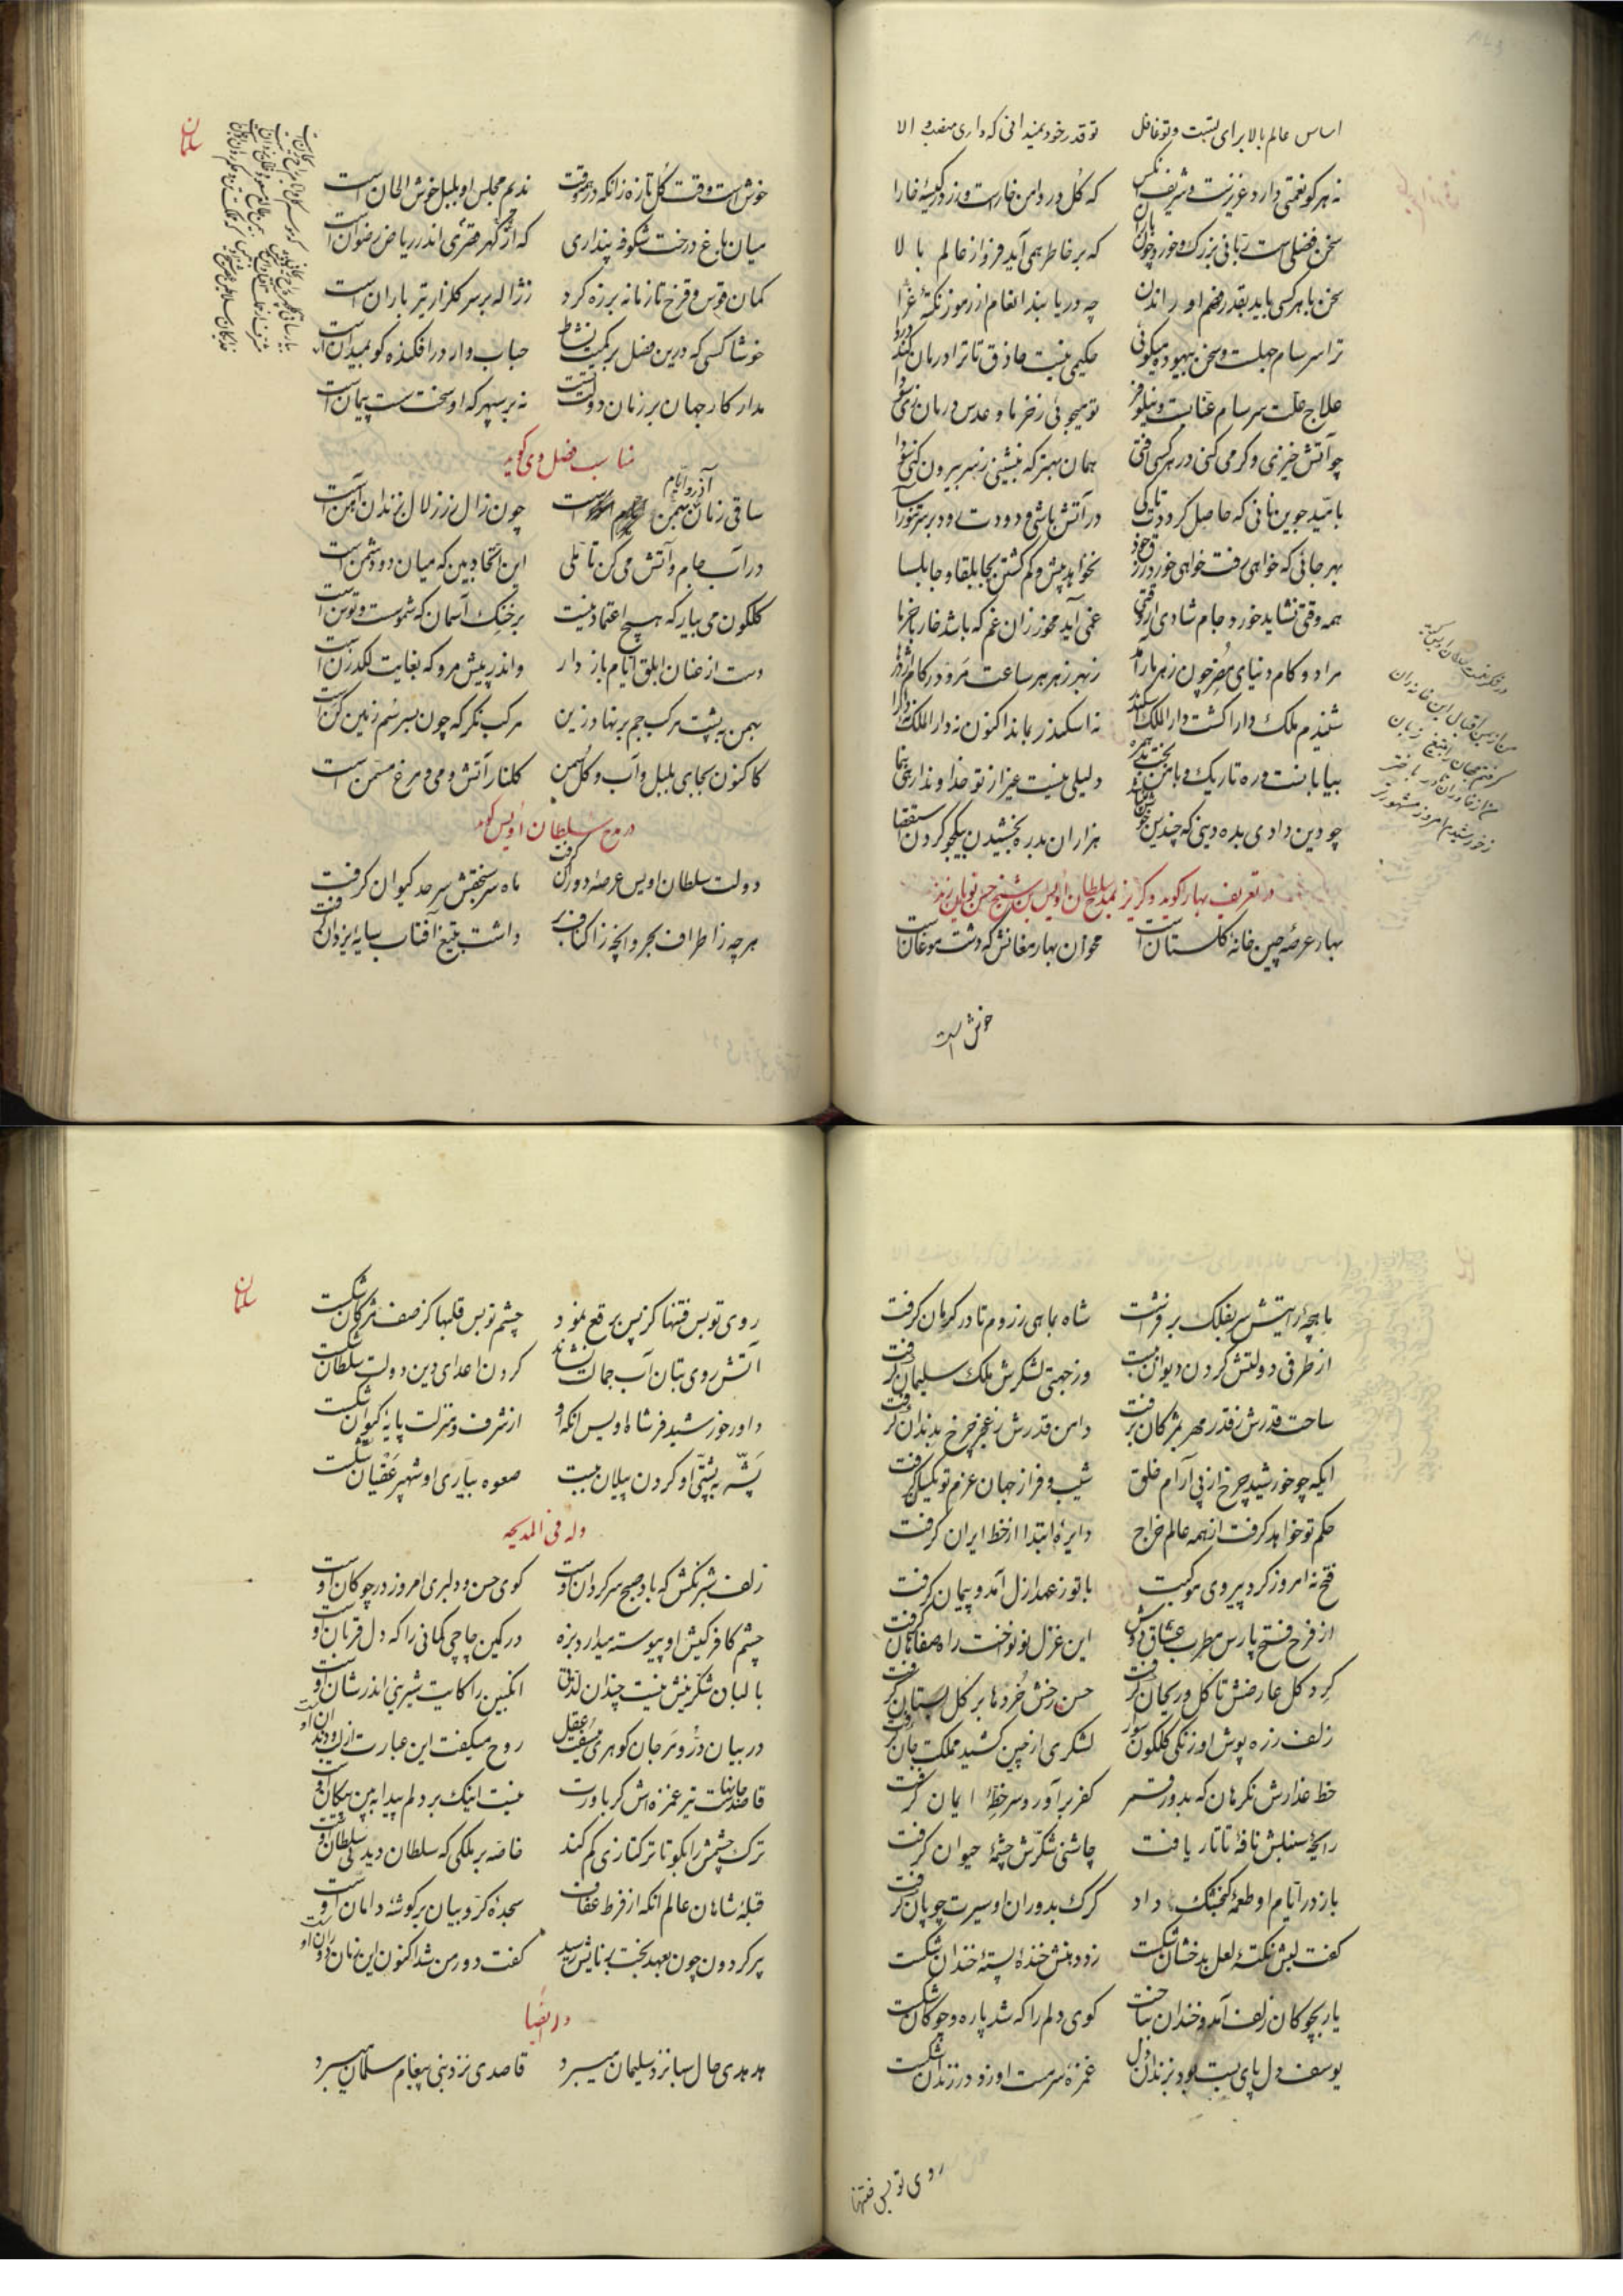 اساس عالم بالا برای تست و تو غافل تو قدر خود نمیدانی که داری منصب والا
نه هر کو نعمتی دارد عزیزست و شریف انکس که گل در دامن خارست و زر در کیسهٔ خارا
سخن فضلی است ربانی بزرگ و خورد چون باران که بر خاطر همی آید فرو از عالم بالا
سخن با هر کسی باید بقدر فهم او راندن چه دریابند انعام از رموز نکتهٔ غرا
ترا سرسام جهلست و سخن بیهوده میگوئی حکیمی نیست حاذق تا ترا درمان کند دروا
علاج علت سرسام عنابست و نیلوفر تو میجوئی ز خرما و عدس درمان زهی سودا
چو آتش خیزی و گرمی کنی در هر کسی افتی همان بهتر که بنشینی ز سر بیرون کنی سودا
بامید جوین نانی که حاصل کرددت تا کی در آتش باشی و دودت رود بر سر تنورآسا
بهر جائی که خواهی رفت خواهی خورد رزق خود نخواهد بیش و کم گشتن بجابلقا و جابلسا
همه وقتی نشاید خورد جام شادی ار وقتی غمی آید مخور زان غم که باشد خار با خرما
مراد و کام دنیای مضر چون زهر مار آمد ز بهر زهر هر ساعت مرو در کام اژدرها
شنیدم ملک دارا گشت دار الملک اسکندر نه اسکندر بماند اکنون نه دار الملک و نه دارا
بیابانست و ره تاریک و با من بخت بد همره دلیلی نیست غیر از تو خداوندا رهی بنما
چو دین دادی بده دینی که چندین نیست هزاران بدره بخشیدن بیکجو کردن استقصا
در تعریف بهار گوید و گریز بمدح سلطان اویس بن شیخ حسن نویان زید
بهار عرصهٔ چین خانهٔ گلستان است مخوان بهار مغانش که دشت موغان است
خوش است
خوش است وقت گل تازه زانکه در همه وقت ندیم مجلس او بلبل خوش الحان است
میان باغ درخت شکوفه پنداری که از قصور گهر قصری اندر ریاض رضوان است
کمان قوس و قزح تا زمانه بر زه کرد ز ژاله بر سر گلزار تیر باران است
خوشا کسی که درین فصل بر کمیت نشاط حباب وار در افکنده گو بمیدان است
مدار کار جهان بر زمان دولت تست نه بر سپهر که او سخت سست پیمان است
مناسب فصل دی گوید
ساقی زمان بهمن و آذر و ایام است چون زال زر زلال بزندان آهن است
در آب جام و آتش می کن تأملی این اتحاد بین که میان دو دشمن است
گلگون می بیار که هیچ اعتماد نیست بر خنگ آسمان که شموست و توسن است
دست از عنان ابلق ایام باز دار واندر پیش مرو که بغایت لگدزن است
بهمن به پشت مرکب جم بر نهاد زین مرکب نگر که چون بسر سم زمین کن است
کاکنون بجای بلبل و آب و گل و سمن گلنار آتش و می و مرغ مسمن است
در مدح سلطان اویس گوید
دولت سلطان اویس عرصهٔ دوران گرفت ماه سر سنجقش سرحد کیوان گرفت
هر چه ز اطراف بحر وانچه ز اکناف بر داشت بتیغ آفتاب سایهٔ یزدان گرفت
سلمان
ماهچهٔ رایتش سر بفلک بر فراشت شاه بماهی ز روم تا در کرمان گرفت
از طرفی دولتش گردن دیوان ببست وز جهتی لشکرش ملک سلیمان گرفت
ساحت قدرش ز قدر مهر بمژگان برفت دامن قدرش ز عجز چرخ بدندان گرفت
ایکه چو خورشید چرخ از پی آرام خلق شیب و فراز جهان عزم تو یکسان گرفت
حکم تو خواهد گرفت از همه عالم خراج دایرهٔ ابتدا از خط ایران گرفت
فتح نه امروز کرد پیروی موکبت با تو ز عهد ازل آمد و پیمان گرفت
از فرح فتح پارس مطرب عشاق دوش این غزل نو نواخت راه صفاهان گرفت
گرد گل عارضش تا گل و ریحان گرفت حسن رخش خردها بر گل بستان گرفت
زلف زره پوش او زنگی گلگون سوار لشکری از چین کشید مملکت جان گرفت
خط عذارش نگر هان که بدور قمر کفر بر آورد سر خطهٔ ایمان گرفت
رایحهٔ سنبلش نافهٔ تاتار یافت چاشنی شکرش چشمهٔ حیوان گرفت
باز در ایام او طعمهٔ گنجشک داد گرگ بدوران او سیرت چوپان گرفت
گفت لبش نکتهٔ لعل بدخشان شکست زد دهنش خندهٔ پستهٔ خندان شکست
یار بچوگان زلف آمد و خندان بتاخت گوی دلم را که شد پاره و چوگان شکست
یوسف دل پای بست بود بزندان دل غمزهٔ سرمست او زد در زندان شکست
روی تو بس فتنها
سلمان
روی تو بس فتنها کز پس برقع نمود چشم تو بس قلبها کز صف مژگان شکست
آتش روی بتان آب جمالت نشاند گردن اعدای دین دولت سلطان شکست
داور خورشید فر شاه اویس انکه او از شرف و منزلت پایهٔ کیوان شکست
پشه به پشتی او گردن پیلان ببست صعوه بیاری او شهپر عقبان شکست
وله فی المدیحه
زلف شبرنگش که باد صبح سرگردان اوست گوی حسن و دلبری امروز در چوگان اوست
چشم کافر کیش او پیوسته میدارد بزه در کمین چاچی کمانی را که دل قربان اوست
با لبان شکرینش نیست چندان لذتی انگبین را کایت شیرینی اندر شان اوست
در بیان در و مرجان گوهری میسفت عقل روح میگفت این عبارت از لب و دندان اوست
قاصد جانهاست تیر غمزه اش گر باورت نیست اینک بر دلم پیدا ببین پیکان اوست
ترک چشمش را بگو تا ترکتازی کم کند خاصه بر ملکی که سلطان دید کی سلطان اوست
قبلهٔ شاهان عالم انکه از فرط عفاف سجدهٔ کروبیان بر گوشهٔ دامان اوست
پیر گردون چون بعهد بخت برنایش رسید گفت دور من شد اکنون این زمان دوران اوست
وله ایضا
هدهدی حال سبا نزد سلیمان میبرد قاصدی نزد نبی پیغام سلمان میبرد